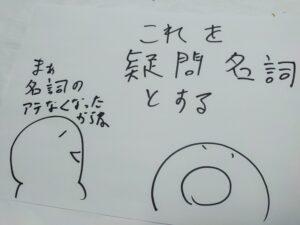 これを
疑問名詞
とする
まぁ
名詞の
アテなくなった
からね